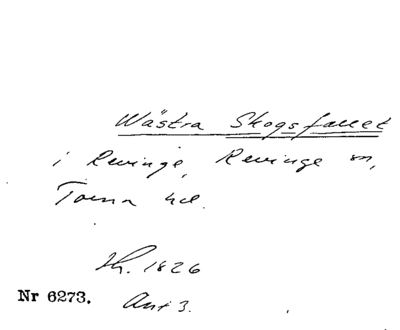 Wästra Skogsfallet
i Revinge, Revinge sn,
Torna hd.
Th. 1826
Nr 6273. Ant 3.